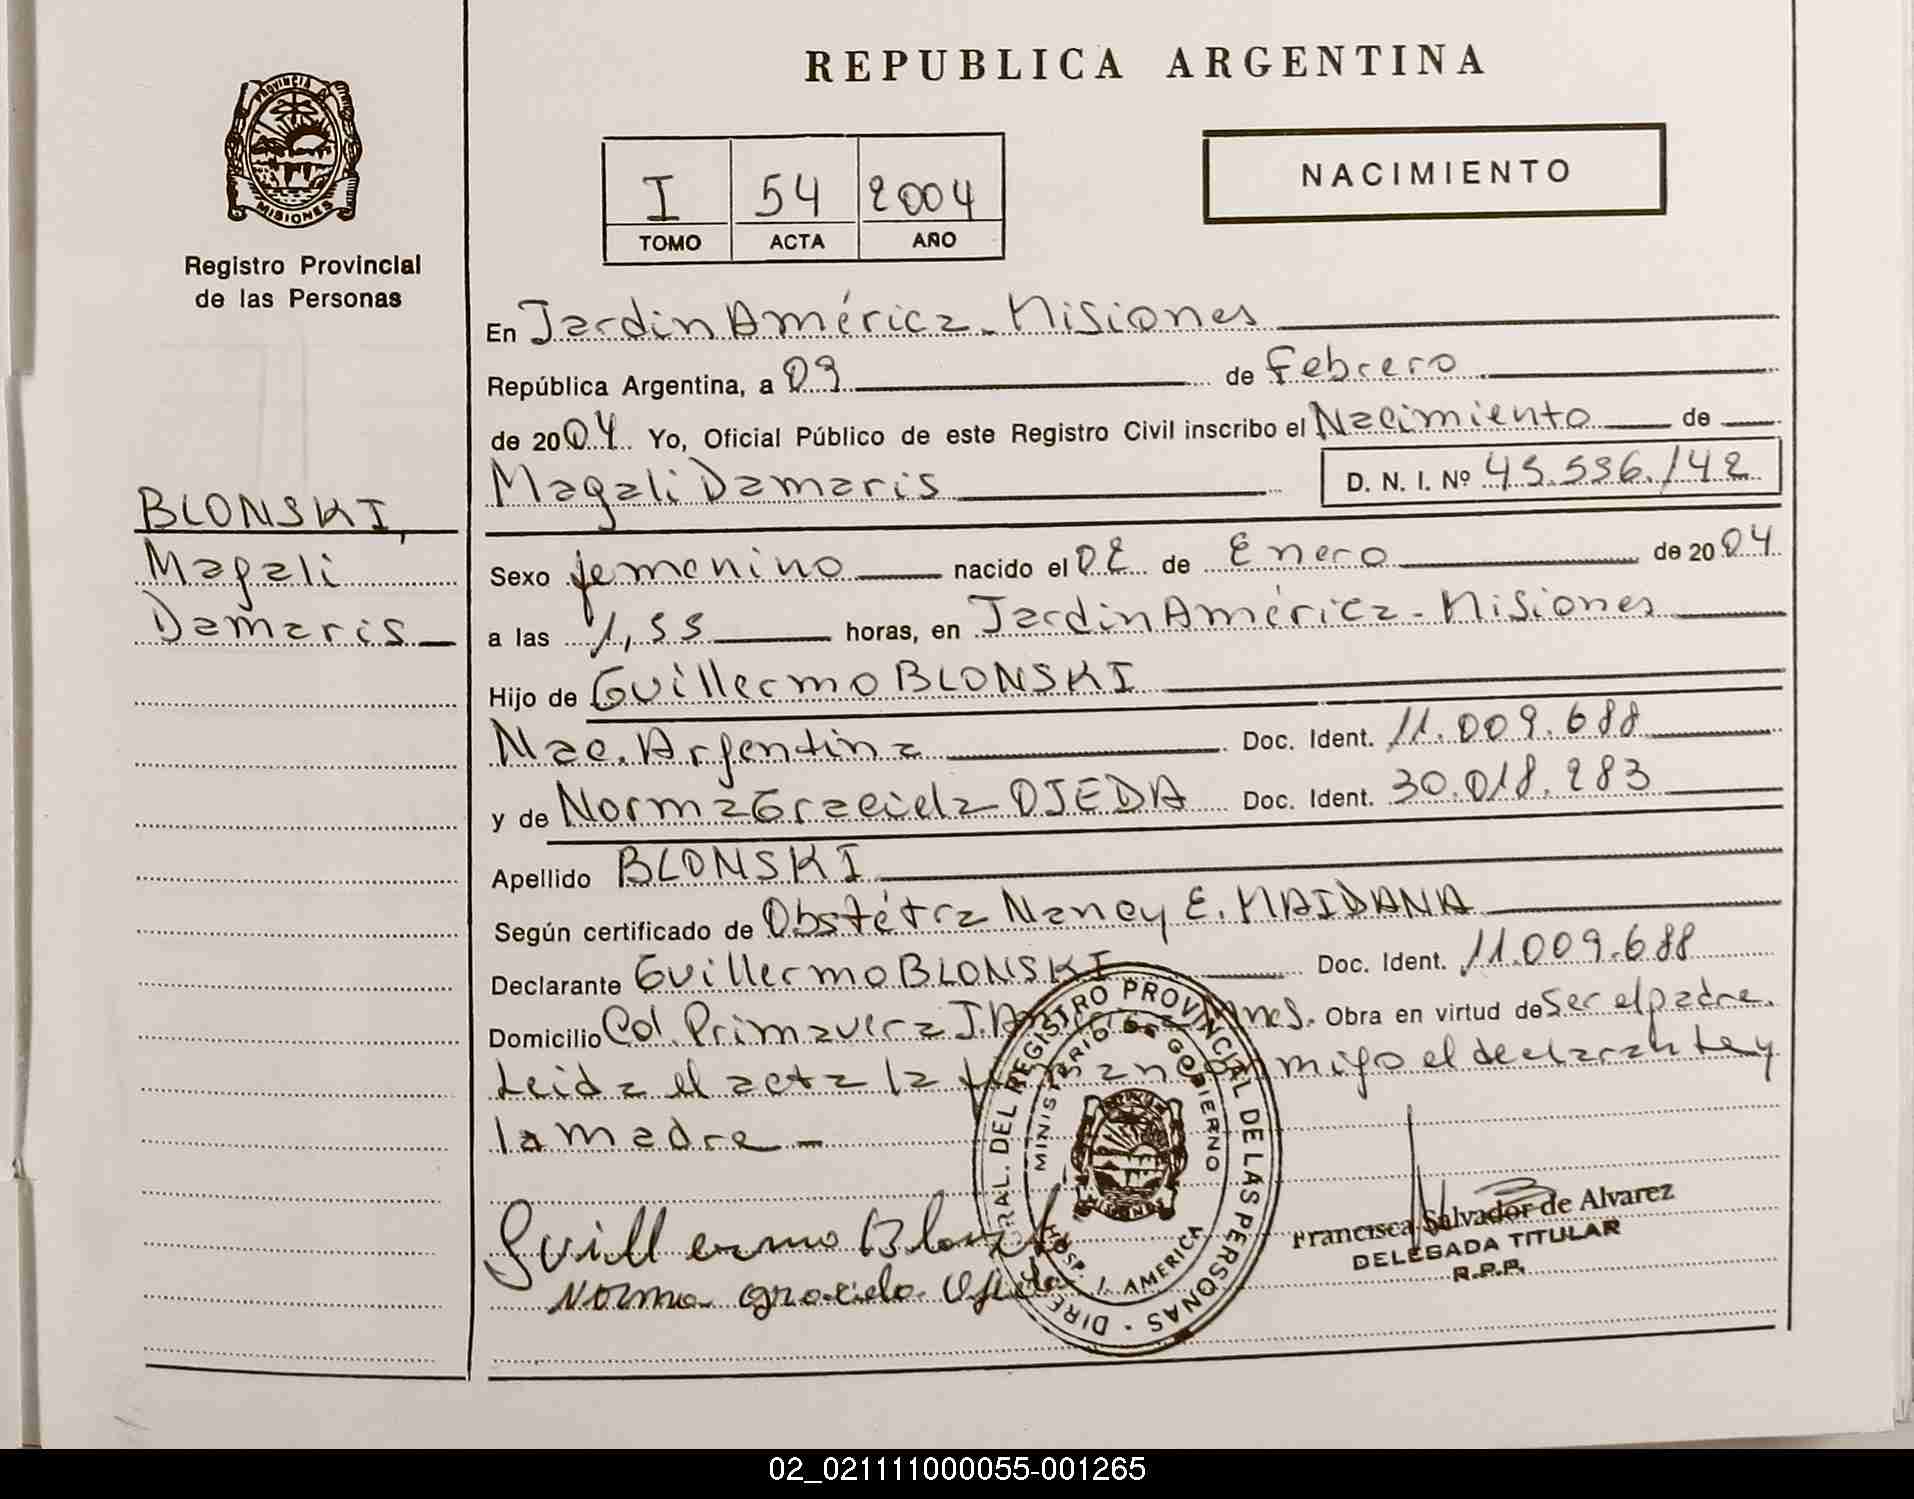 REPUBLICA ARGENTINA
PROVINCIA DE MISIONES
Registro Provincial
de las Personas
I 54 2004
TOMO ACTA AÑO
NACIMIENTO
BLONSKI,
Magali
Damaris
En Jardin América - Misiones
República Argentina, a 09 de Febrero
de 2004 Yo, Oficial Público de este Registro Civil inscribo el Nacimiento de
Magali Damaris D. N. I. Nº 45.536.142
Sexo femenino nacido el 02 de Enero de 2004
a las 1,55 horas, en Jardin América - Misiones
Hijo de Guillermo BLONSKI
Nac. Argentina Doc. Ident. 11.009.688
y de Norma Graciela OJEDA Doc. Ident. 30.018.283
Apellido BLONSKI
Según certificado de Obstétra Nancy E. MAIDANA
Declarante Guillermo BLONSKI Doc. Ident. 11.009.688
Domicilio Col. Primavera Mnes. Obra en virtud de ser el padre.
Leida el acta la firman conmigo el declarante y
la madre -
Guillermo Blonski
Norma graciela Ojeda
DIRE RAL. DEL REGISTRO PROVINCIAL DE LAS PERSONAS -
MINISTERIO DE GOBIERNO
HOSP. J. AMERICA
MISIONES
Francisca Salvador de Alvarez
DELEGADA TITULAR
R.P.P.
02_021111000055-001265